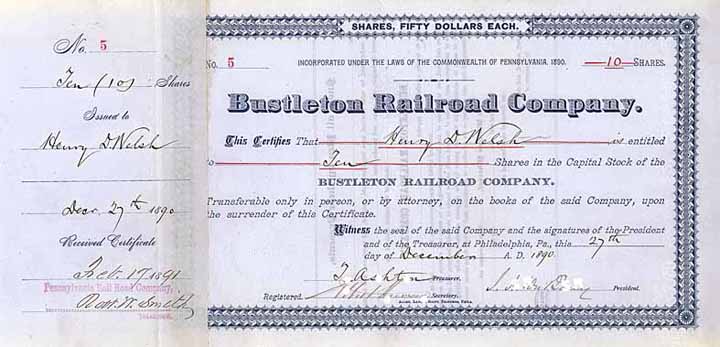 No. 5
Ten (10) Shares
Issued to
Henry D. Welsh
Decr. 27th 1890
Received Certificate
Feb. 17. 1891
Pennsylvania Rail Road Company,
SHARES, FIFTY DOLLARS EACH.
No. 5 INCORPORATED UNDER THE LAWS OF THE COMMONWEALTH OF PENNSYLVANIA, 1890. 10 SHARES.
Bustleton Railroad Company.
This Certifies That Henry D. Welsh is entitled
to Ten Shares in the Capital Stock of the
BUSTLETON RAILROAD COMPANY.
Transferable only in person, or by attorney, on the books of the said Company, upon
the surrender of this Certificate.
Witness the seal of the said Company and the signatures of the President
and of the Treasurer, at Philadelphia, Pa., this 27th
day of December A. D. 1890.
T. Ashton Treasurer.
President.
Registered. Secretary.